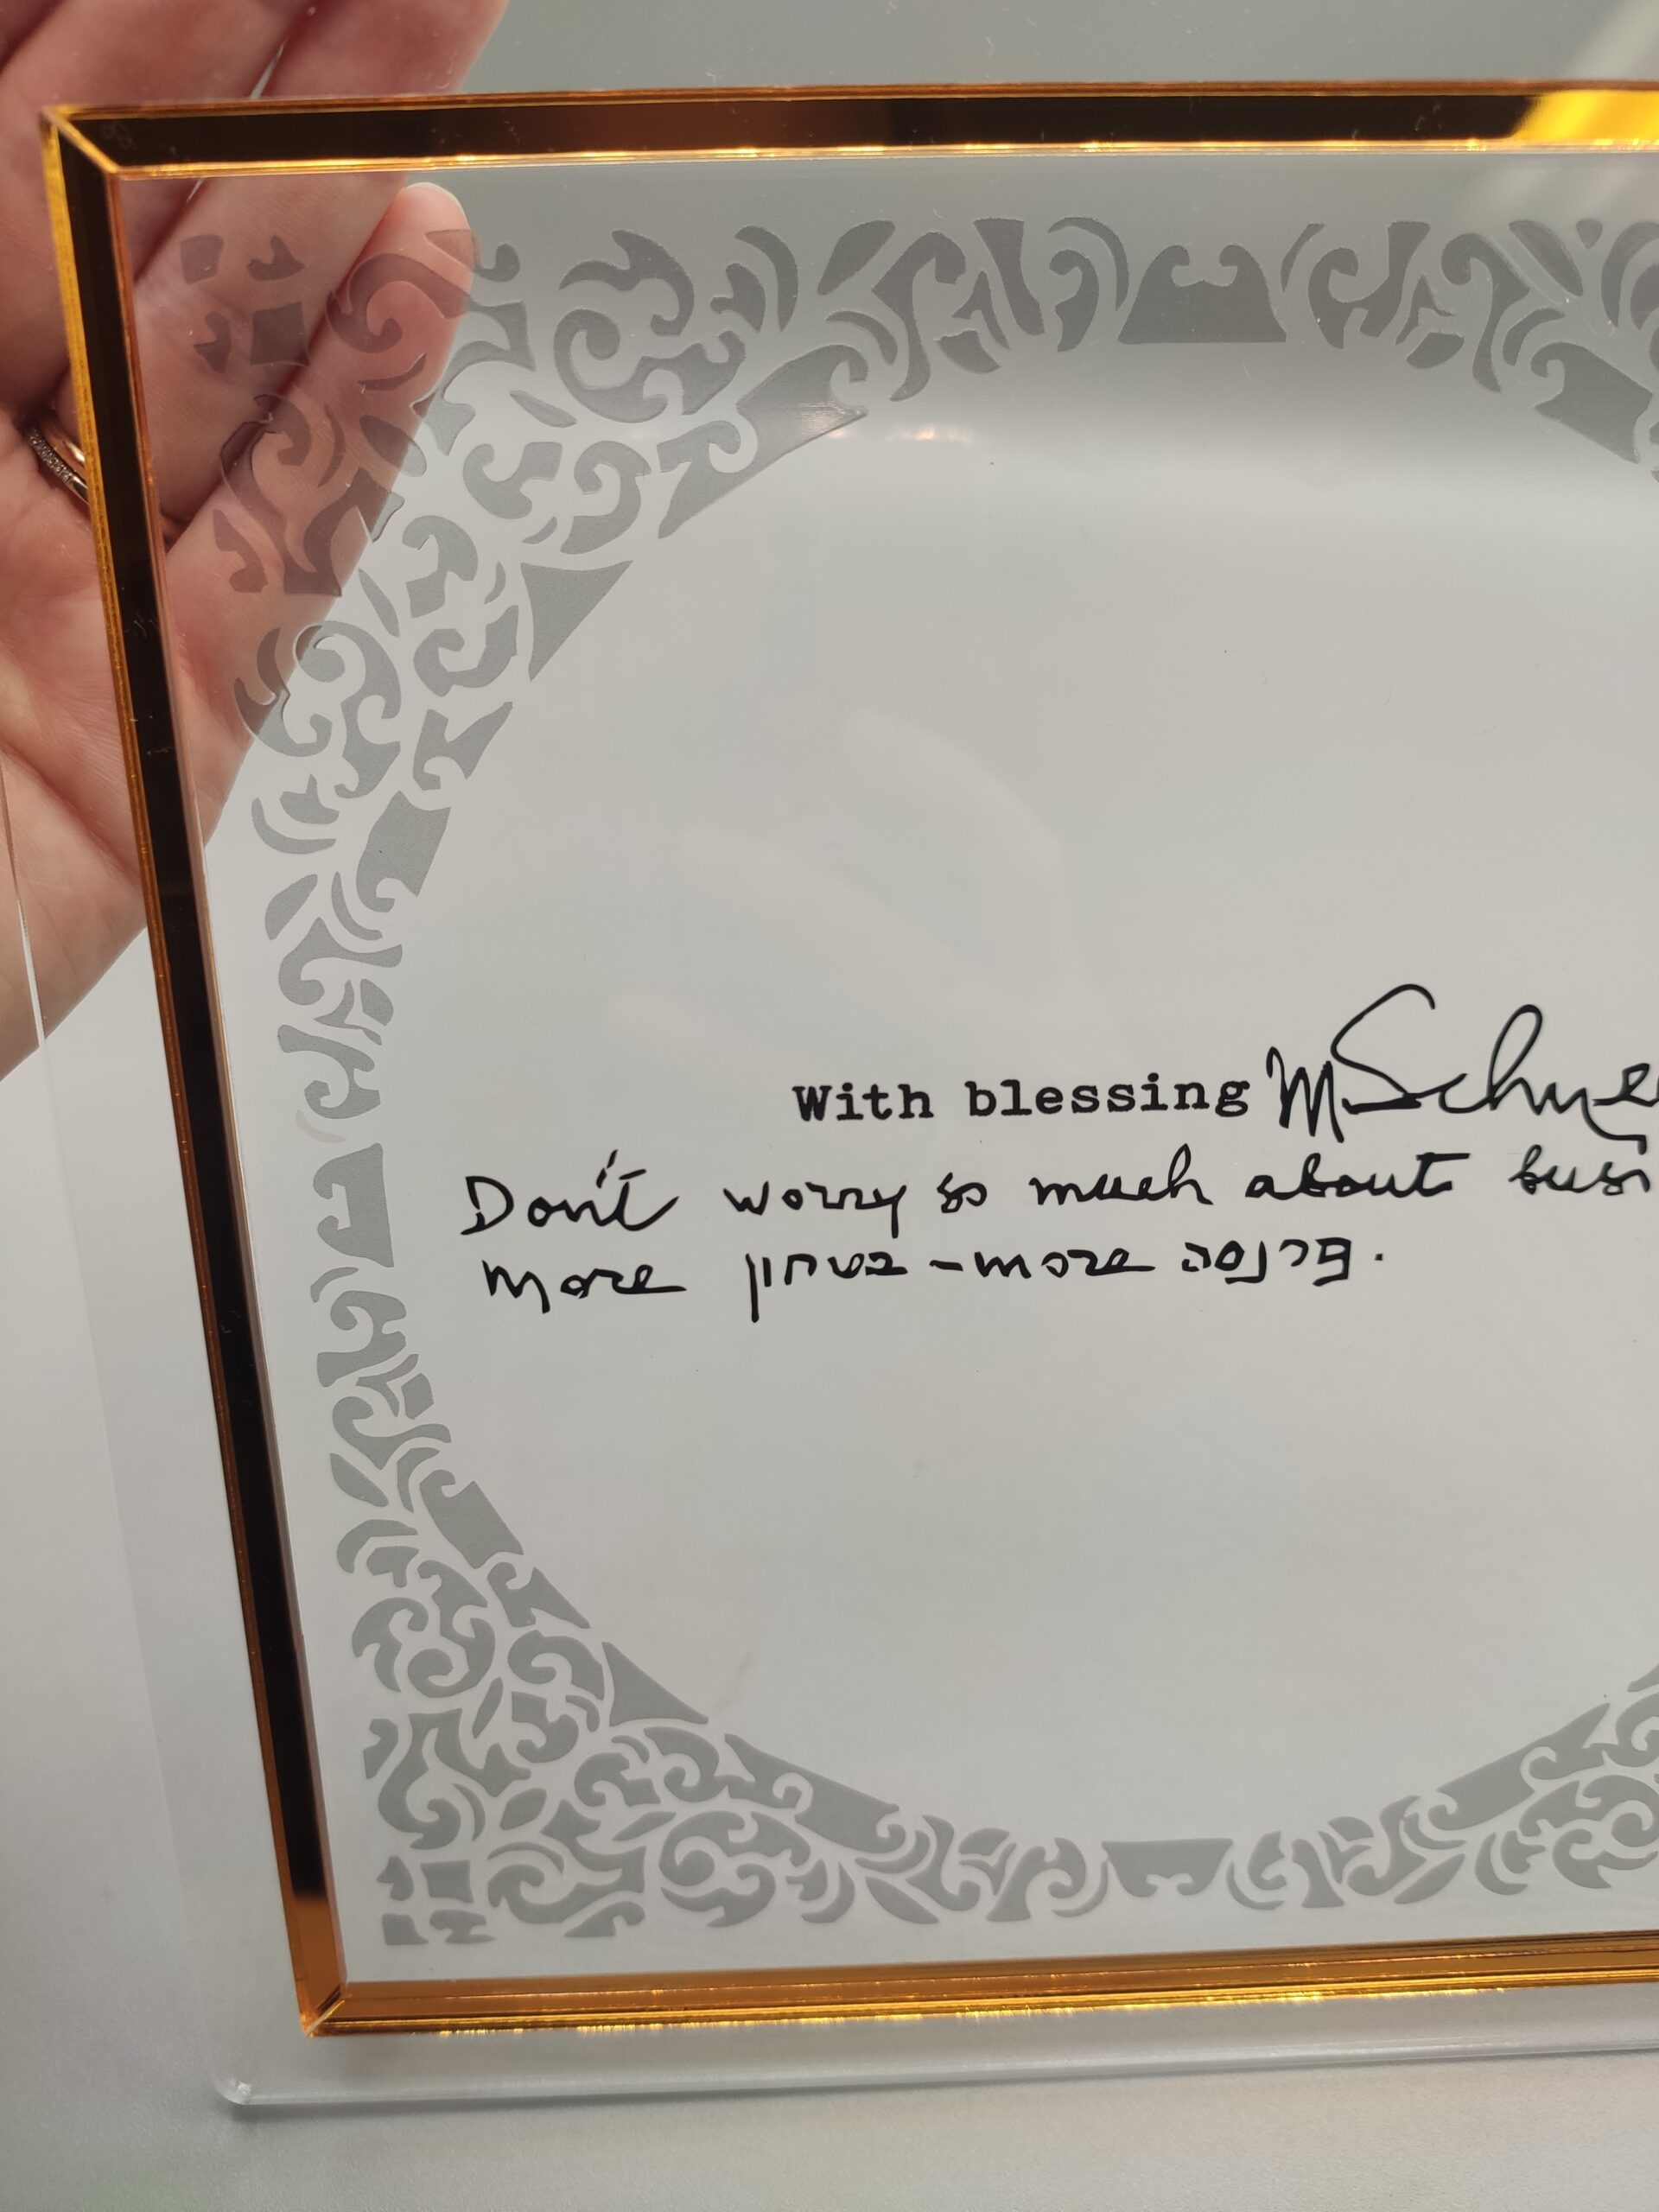 With blessing MSchne
Don't worry so much about busi
More בטחון - more פרנסה.